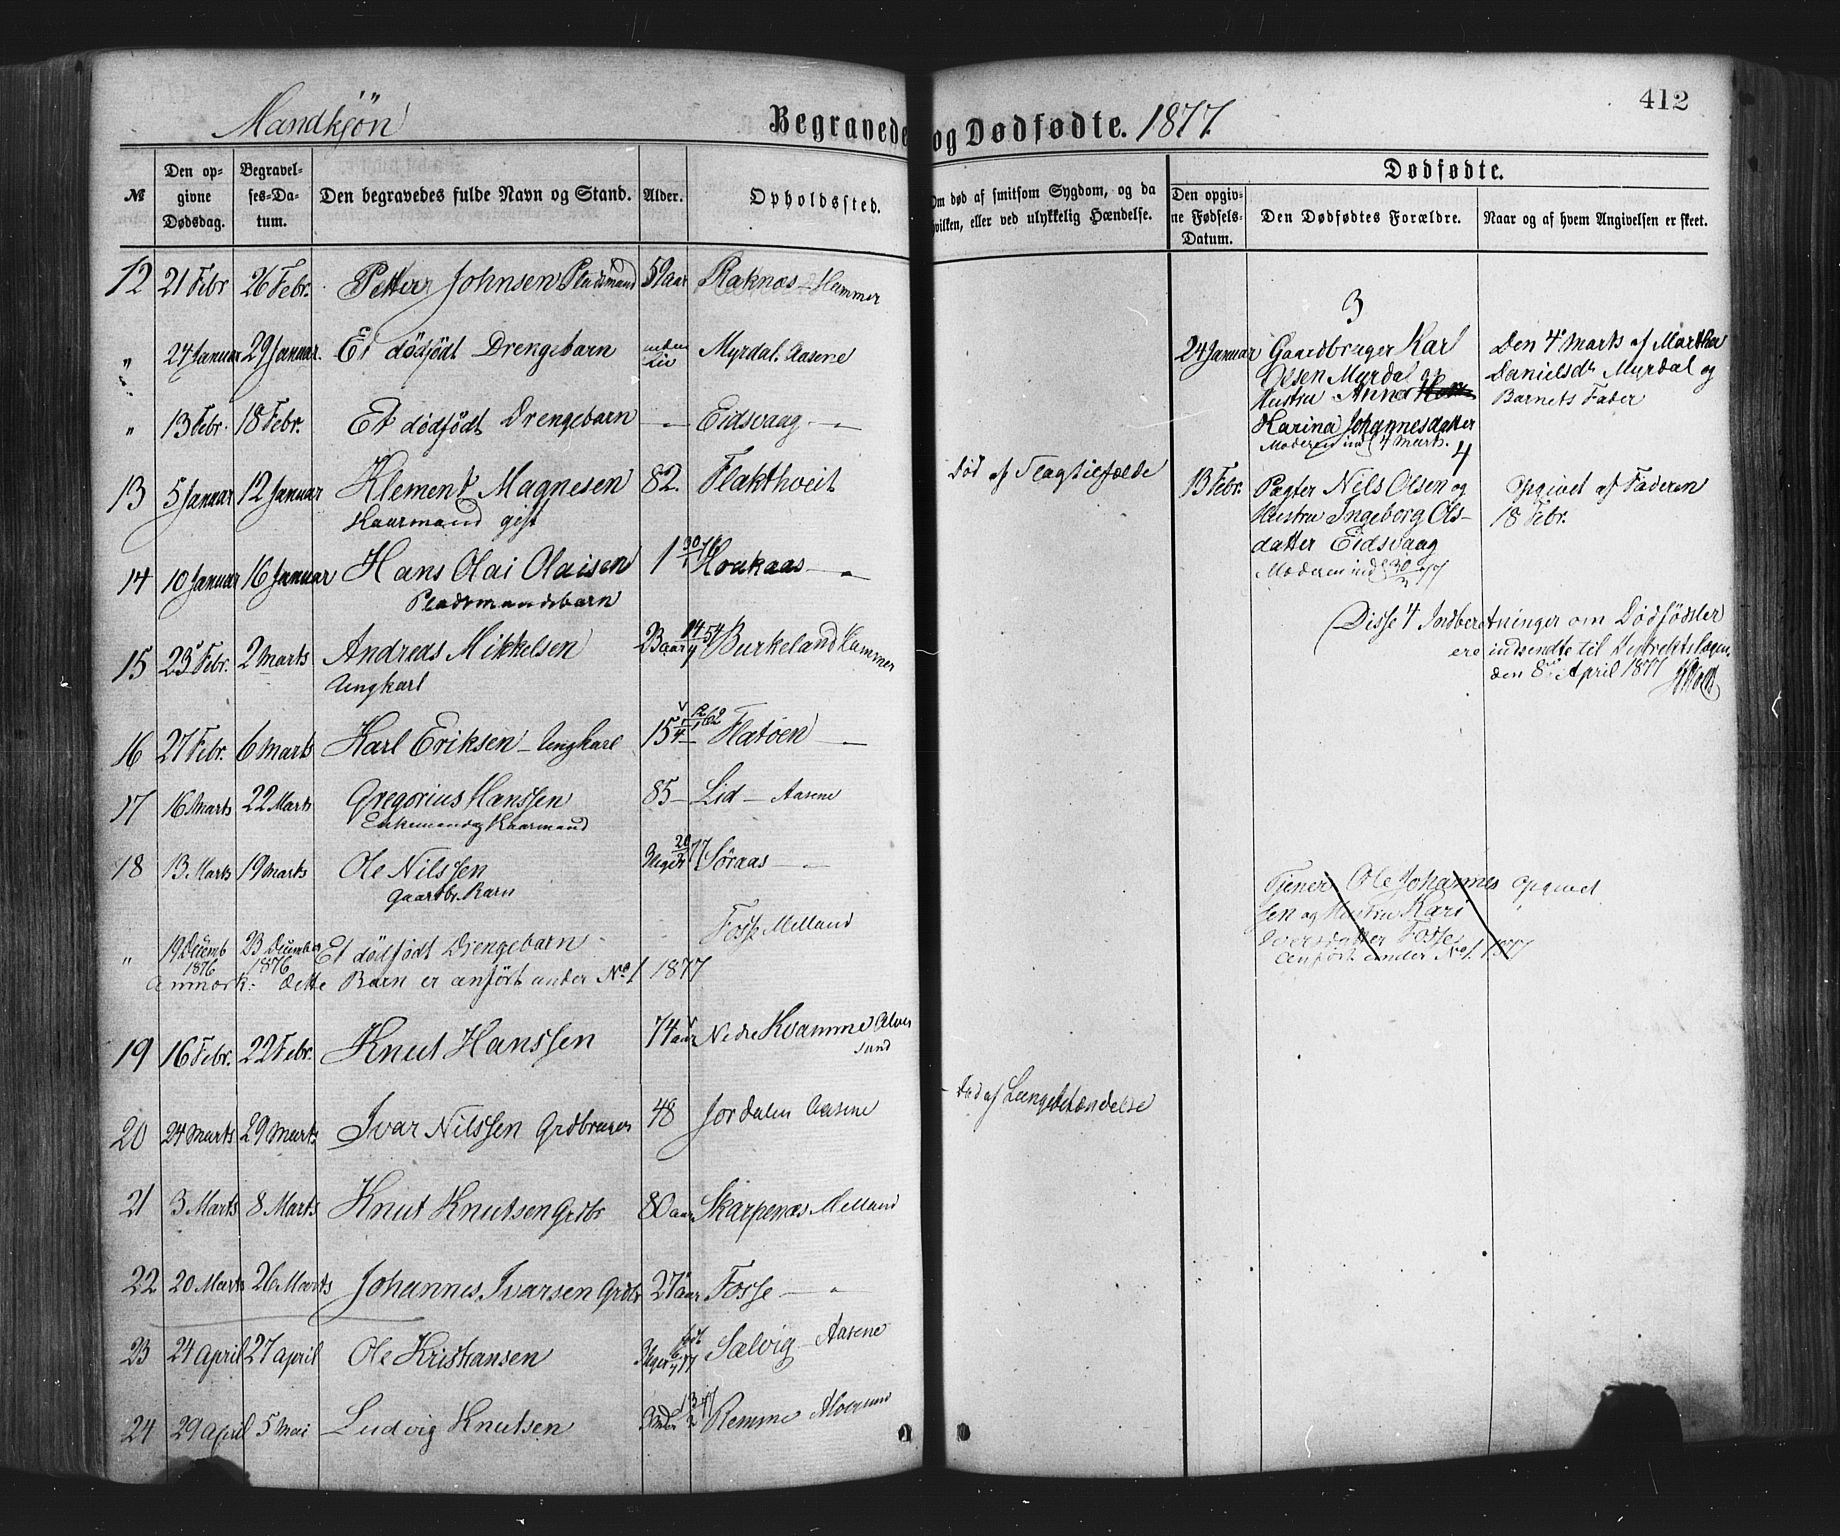 412
Mandkjön
Begravede og Dødfødte. 1877.
№
Den op-
givne
Dødsdag.
Begravel-
ses-Da-
tum.
Den begravedes fulde Navn og Stand.
Alder.
Opholdssted.
Om død af smitsom Sygdom, og da
hvilken, eller ved ulykkelig Hændelse.
Dødfødte.
Den opgiv-
ne Fødsels-
Datum.
Den Dødfødtes Forældre.
Naar og af hvem Angivelsen er skeet.
12 21 Febr 26 Febr. Petter Johnsen Pladsmand 59 aar Raknæs - Hammer
3
" 24 Januar 29 Januar. Et dödfödt Drengebarn uden Liv Myrdal. Aasene
24 Januar Gaardbruger Karl
Olsen Myrdal og
Hustru Anna
Karina Johannesdatter
Moderen ind 4 Mart.
Den 4de Marts af Martha
Danielsdtr Myrdal og
Barnets Fader
" 13 Febr. 18 Febr. Et dödfödt Drengebarn — Eidsvaag — "
4
13 5 Januar 12 Januar Klement Magnesen 82. Flakthveit
Kaarmand gift
Död af Slagtilfælde
13 Febr. Pagter Nils Olsen og
Hustru Ingeborg Ols-
datter Eidsvaag
Moderen ind 30/3 77
Opgivet af Faderen
18 Febr.
14 10 Januar 16 Januar Hans Olai Olaisen 1 30/1 76 Houkaas — "
Pladsmandsbarn
Disse 4 Indberetninger om Dödfödsler
ere indsendte til Distriktslægen
den 8de April 1877
15 23 Febr. 2 Marts Andreas Mikkelsen 23 aar 14/4 54 Burkeland Hammer
Ungkarl
16 27 Febr. 6 Marts Karl Eriksen - Ungkarl 15 1/4 12/1 62 Flatöen — "
17 16 Marts 22 Marts Gregorius Hanssen 85 — Lid — Aasene
Enkemand og Kaarmand
18 13 Marts 19 Marts Ole Nilssen 3 uger 20/2 77 Söraas — "
Gaardbr. Barn
Tjener Ole Johannes-
sen og Hustru Kari
Iversdatter Fosse
Anfört under No 1. 1877
opgivet
" 19 Decemb 1876 23 December 1876 Et dödfödt Drengebarn - Fosse Melland
Anmærk: dette Barn er anfört under No 1 1877
19 16 Febr. 22 Febr. Knut Hanssen 74 aar Nedre Kvamme Alver
sund
20 24 Marts 29 Marts Ivar Nilssen Grdbruger 48 Jordalen Aasene
Död af Lungebetændelse
21 3 Marts 8 Marts Knut Knutsen Grdbr 80 aar Skarpenæs Melland
22 20 Marts 26 Marts Johannes Ivarsen Grdbr 27 aar Fosse — "
23 24 April 27 April Ole Kristiansen 3 uger födt 6/4 77 Sælvig - Aasene
24 29 April 5 Mai Ludvig Knutsen 3 mdr 13/2 77 Remme Alversund